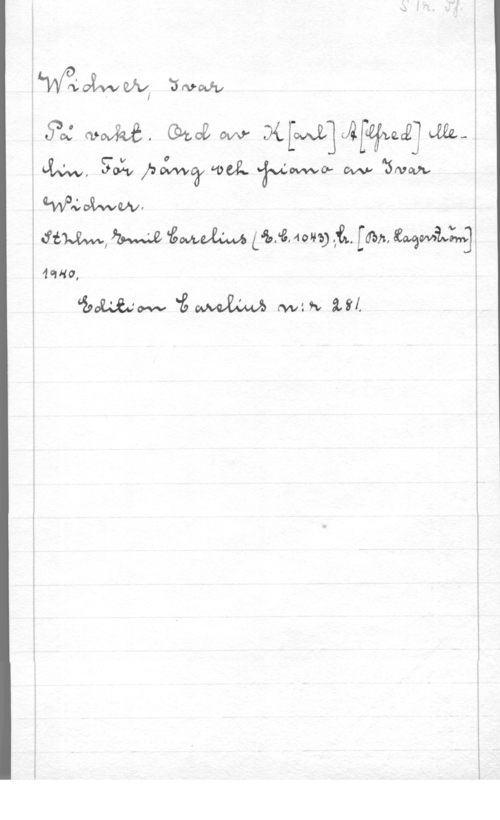 S Tr. Sf.
Widner, Ivar
På vakt. Ord av K[arl] A[lfred] Me-
lin. För sång och piano av Ivar
Widner.
Sthlm, Emil Carelius (E.C. 1043), tr. [Br. Lagerström]
1940.
Edition Carelius n:r 281.